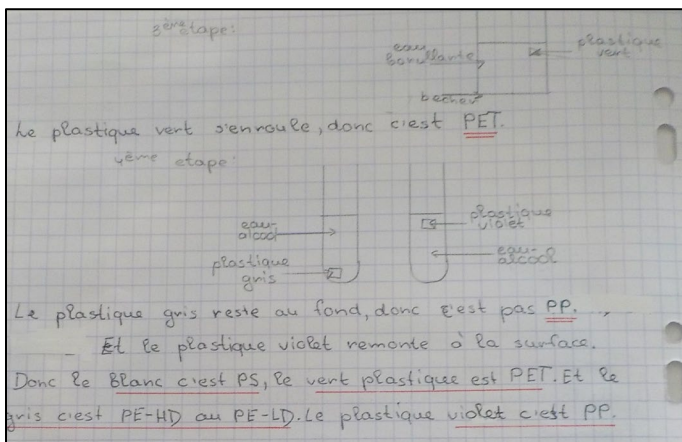 3ème étape:
eau bouillante
plastique vert
becher
Le plastique vert s'enroule, donc c'est PET.
4ème etape:
eau-alcool
plastique gris
plastique violet
eau-alcool
Le plastique gris reste au fond, donc c'est pas PP.
Et le plastique violet remonte à la surface.
Donc le Blanc c'est PS, le vert plastique est PET. Et le
gris c'est PE-HD au PE-LD. Le plastique violet c'est PP.